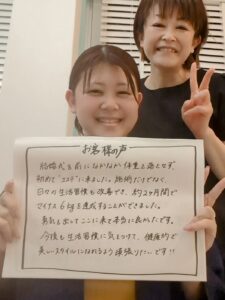 お客様の声
結婚式を前になかなか体重を落とせず、
初めて"エステ"に来ました。施術だけでなく、
日々の生活習慣も改善でき、約2ヶ月間で
マイナス6kgを達成することができました。
勇気を出してここに来て本当に良かったです。
今後も生活習慣に気をつけて、健康的で
美しいスタイルになれるよう頑張りたいです!!